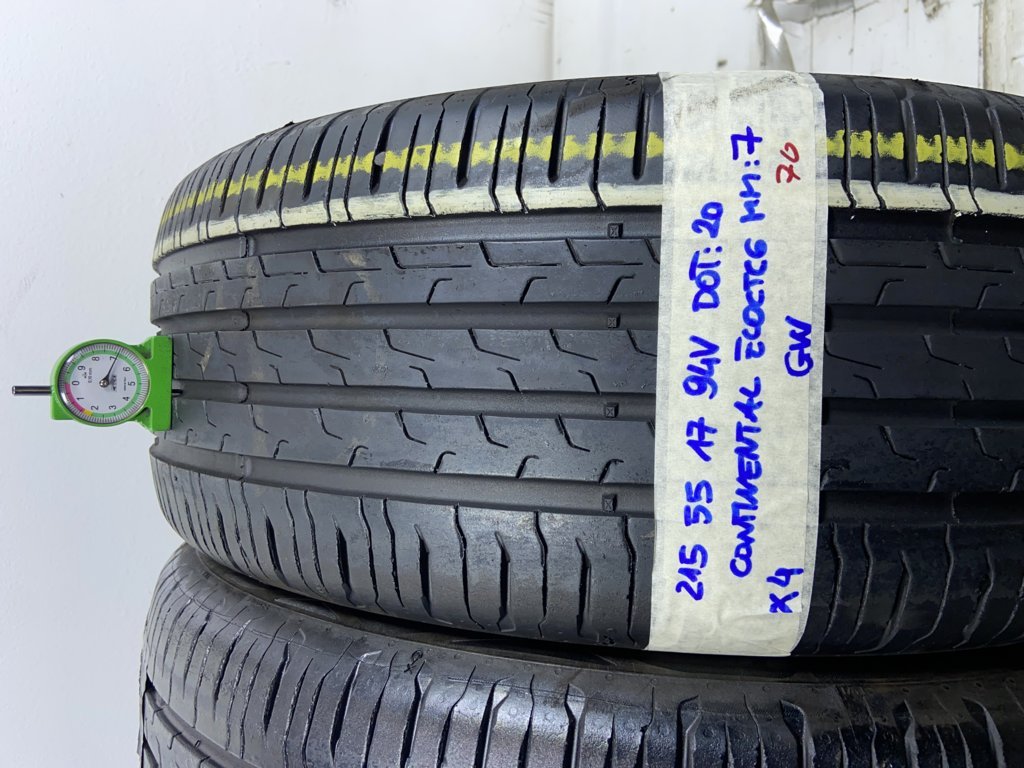 215 55 17 94V DOT: 20
CONTINENTAL ECOCTC6 MM: 7
X4 GW 76
0 1 2 3 4 5 6 7 8 9